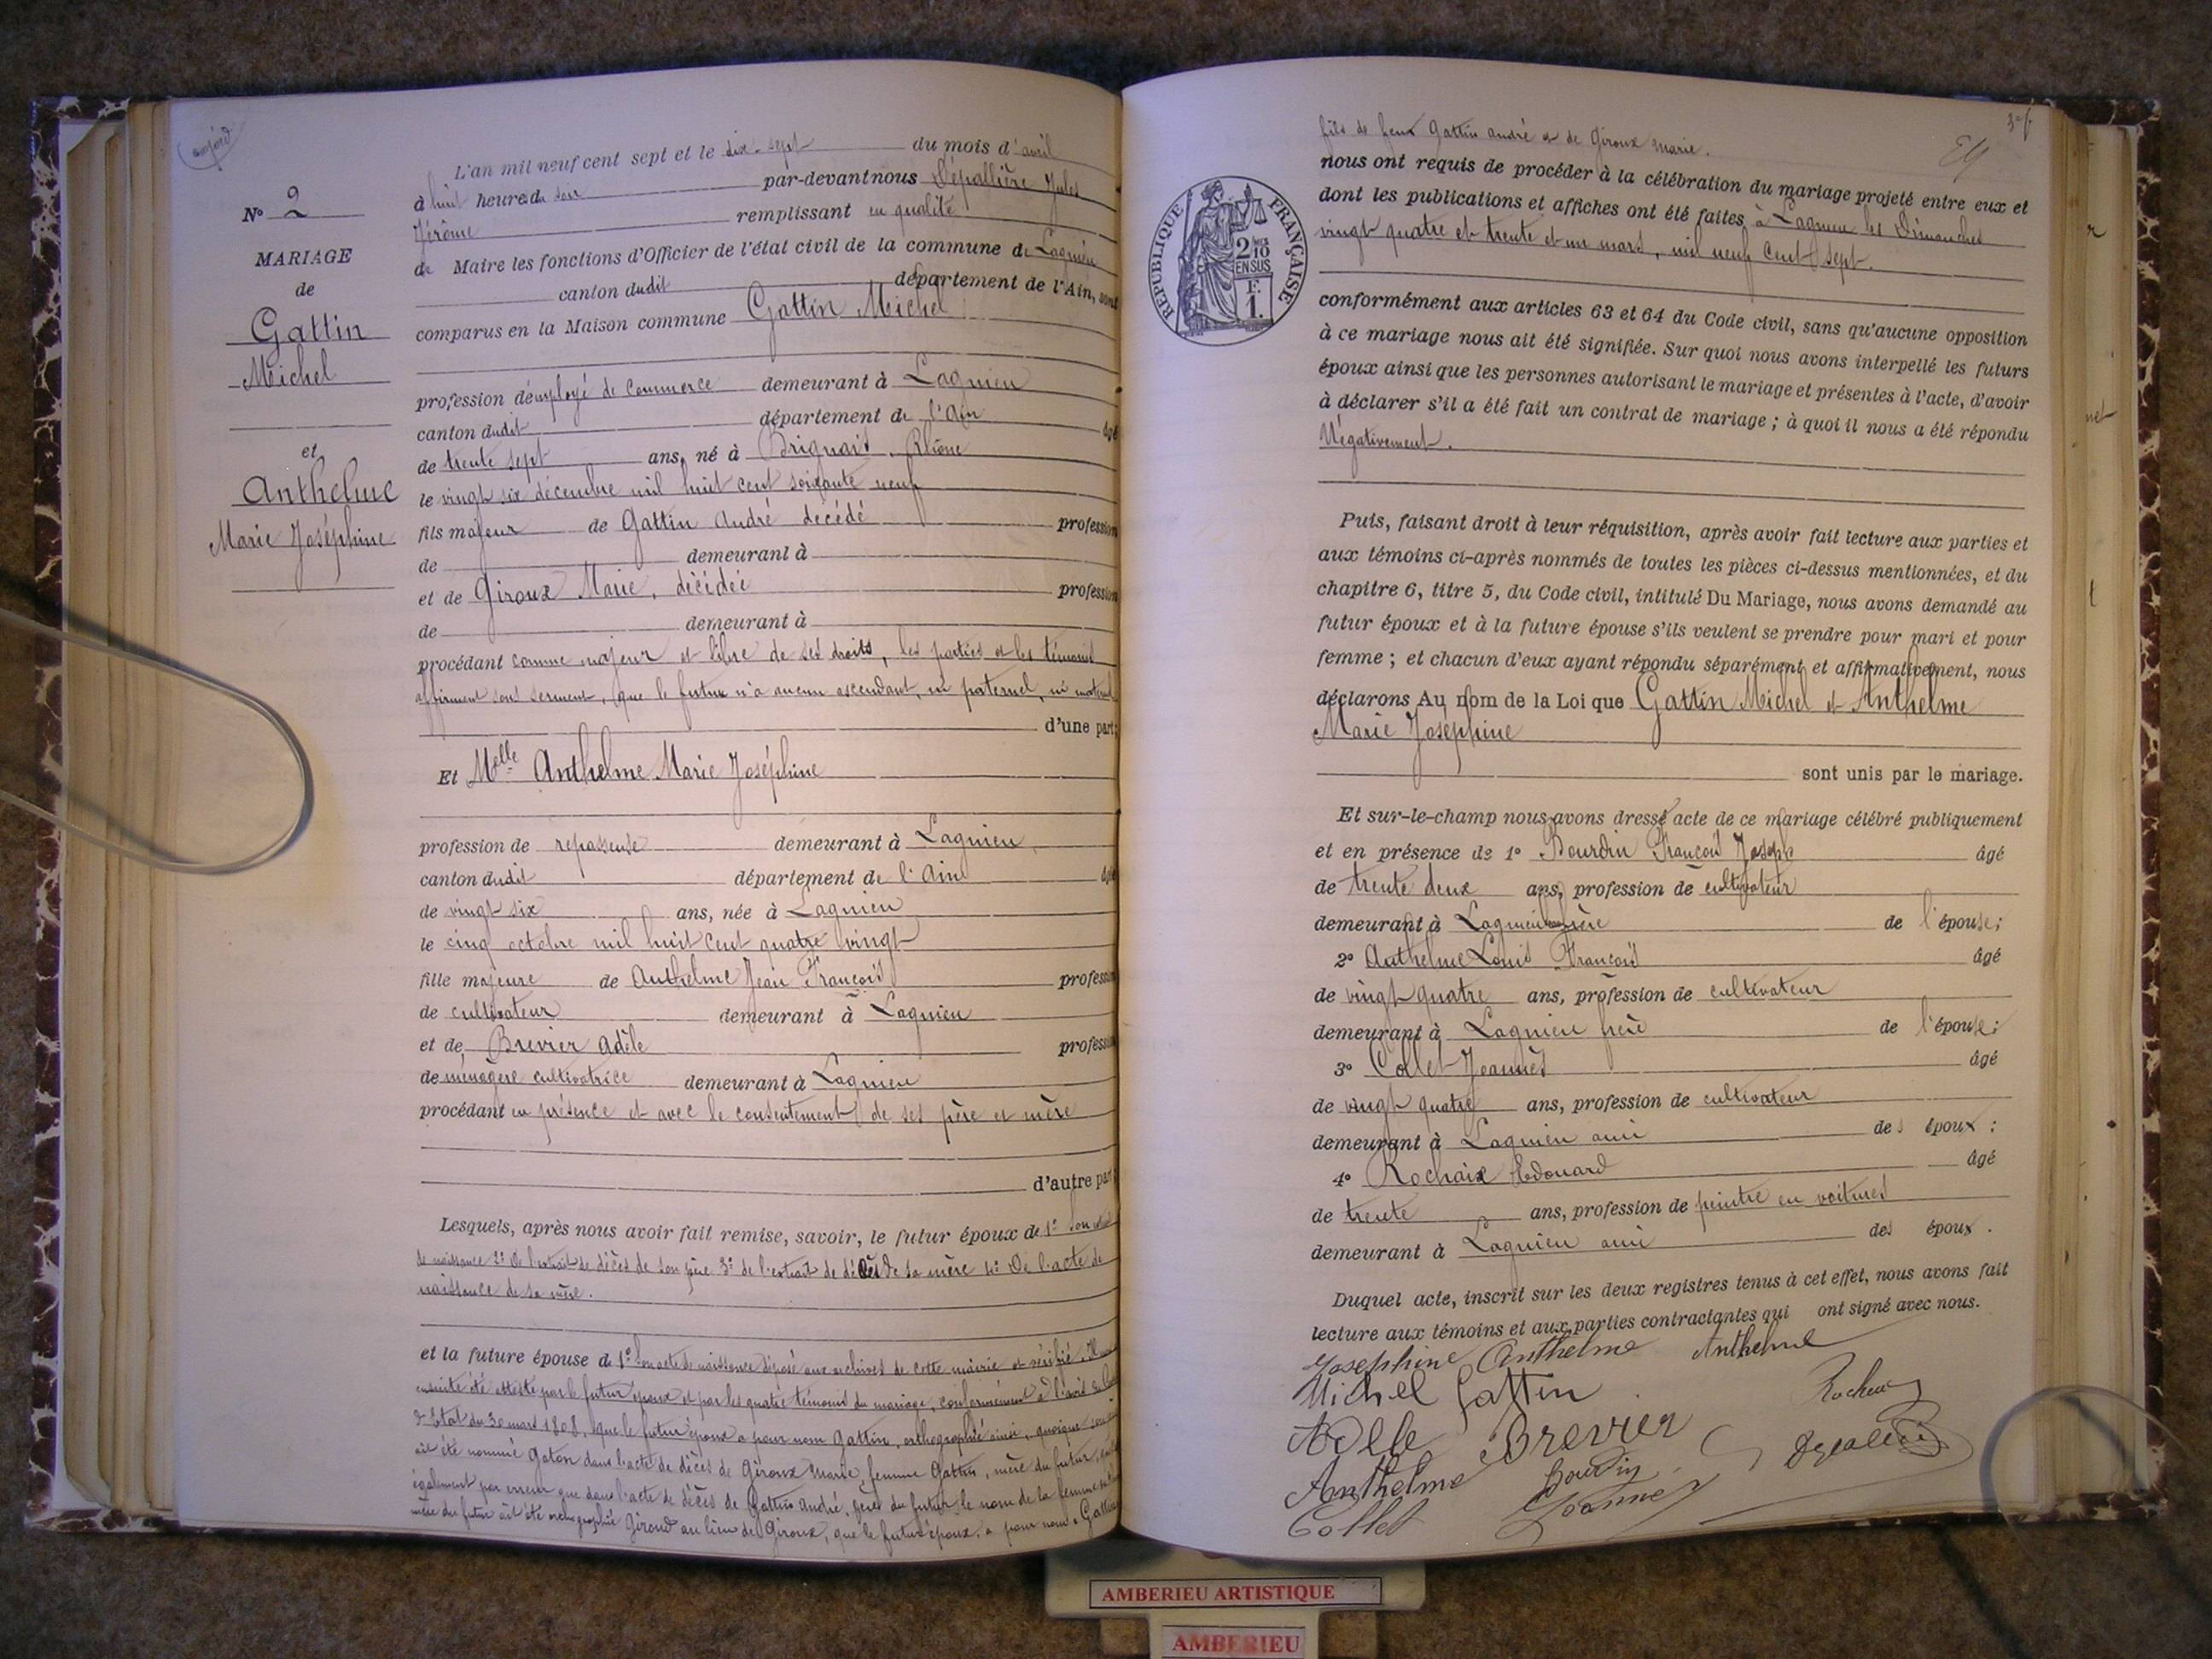 N° 2
MARIAGE
de
Gattin
Michel
et
Anthelme
Marie Joséphine
L'an mil neuf cent sept et le dix-sept du mois d'avril
à huit heures du soir par-devant nous Dépallière Jules
Jérôme remplissant en qualité
de Maire les fonctions d'Officier de l'état civil de la commune de Lagnieu
canton dudit département de l'Ain, sont
comparus en la Maison commune Gattin Michel
profession d'employé de commerce demeurant à Lagnieu
canton dudit département de l'Ain âgé
de trente sept ans, né à Brignais Rhône
le vingt six décembre mil huit cent soixante neuf
fils majeur de Gattin André décédé profession
de demeurant à
et de Giroux Marie, décédée profession
de demeurant à
procédant comme majeur et libre de ses droits, les parties et les témoins
affirment sous serment, que le futur n'a aucun ascendant, ni paternel, ni maternel
d'une part;
Et Melle Anthelme Marie Joséphine
profession de repasseuse demeurant à Lagnieu
canton dudit département de l'Ain âgé
de vingt six ans, née à Lagnieu
le cinq octobre mil huit cent quatre vingt
fille majeure de Anthelme Jean François profession
de cultivateur demeurant à Lagnieu
et de Brevier Adèle profession
de ménagère cultivatrice demeurant à Lagnieu
procédant en présence et avec le consentement de ses père et mère
d'autre part
Lesquels, après nous avoir fait remise, savoir, le futur époux de 1° Son
de naissance 2° de l'extrait de décès de son père 3° de l'extrait de décès de sa mère 4° De l'acte de
naissance de sa mère.
et la future épouse de 1° Son acte de naissance déposé aux archives de cette mairie et vérifié. Il
ensuite été attesté par le futur époux et par les quatre témoins du mariage, conformément à l'avis du
d'Etat du 30 mars 1808, que le futur époux a pour nom Gattin, orthographié ainsi, quoique
ait été nommé Gaton dans l'acte de décès de Giroux Marie, femme Gattin, mère du futur,
également par erreur que dans l'acte de décès de Gattin André, père du futur, le nom de la femme
mère du futur ait été orthographié Giroud au lieu de Giroux, que le futur époux, a pour nom, Gattin
fils de feux Gattin André et de Giroux Marie.
nous ont requis de procéder à la célébration du mariage projeté entre eux et
dont les publications et affiches ont été faites à Lagnieu les Dimanches
vingt quatre et trente et un mars, mil neuf cent sept.
RÉPUBLIQUE FRANÇAISE
2/10
EN SUS
F.
1.
conformément aux articles 63 et 64 du Code civil, sans qu'aucune opposition
à ce mariage nous ait été signifiée. Sur quoi nous avons interpellé les futurs
époux ainsi que les personnes autorisant le mariage et présentes à l'acte, d'avoir
à déclarer s'il a été fait un contrat de mariage ; à quoi il nous a été répondu
Négativement.
Puis, faisant droit à leur réquisition, après avoir fait lecture aux parties et
aux témoins ci-après nommés de toutes les pièces ci-dessus mentionnées, et du
chapitre 6, titre 5, du Code civil, intitulé Du Mariage, nous avons demandé au
futur époux et à la future épouse s'ils veulent se prendre pour mari et pour
femme ; et chacun d'eux ayant répondu séparément et affirmativement, nous
déclarons Au nom de la Loi que Gattin Michel et Anthelme
Marie Joséphine
sont unis par le mariage.
Et sur-le-champ nous avons dressé acte de ce mariage célébré publiquement
et en présence de 1° Bourdin François Joseph âgé
de trente deux ans, profession de cultivateur
demeurant à Lagnieu de l'épouse;
2° Anthelme Louis François âgé
de vingt quatre ans, profession de cultivateur
demeurant à Lagnieu frère de l'épouse;
3° Collet Joannès âgé
de vingt quatre ans, profession de cultivateur
demeurant à Lagnieu ami des époux ;
4° Rochaix Edouard âgé
de trente ans, profession de peintre en voitures
demeurant à Lagnieu ami des époux.
Duquel acte, inscrit sur les deux registres tenus à cet effet, nous avons fait
lecture aux témoins et aux parties contractantes qui ont signé avec nous.
Josephine Anthelme Anthelme
Michel Gattin
Adele Brevier
Anthelme Bourdin
Collet Joannes
AMBERIEU ARTISTIQUE
AMBERIEU